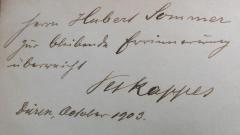 Herrn Hubert Sommer
zur bleibende Errinnerung
überreicht
Kappes
Düren, October 1903.